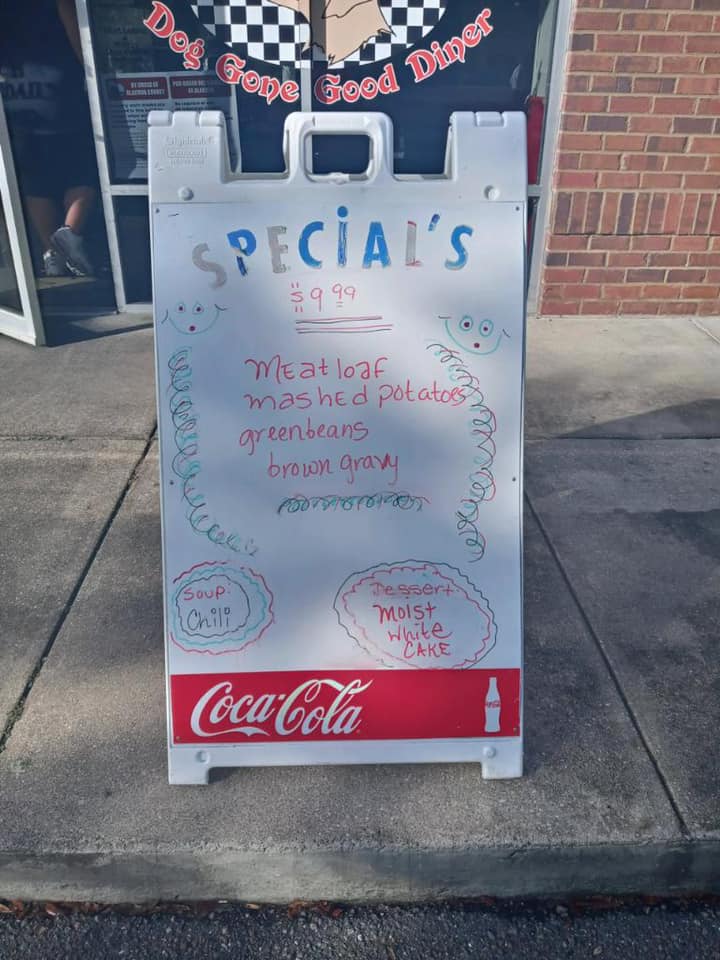 Dog Gone Good Diner
SPECiAL'S
$9.99
Meatloaf
mashed potatoes
greenbeans
brown gravy
Soup:
Chili
Dessert:
Moist
White
CAKE
Coca-Cola